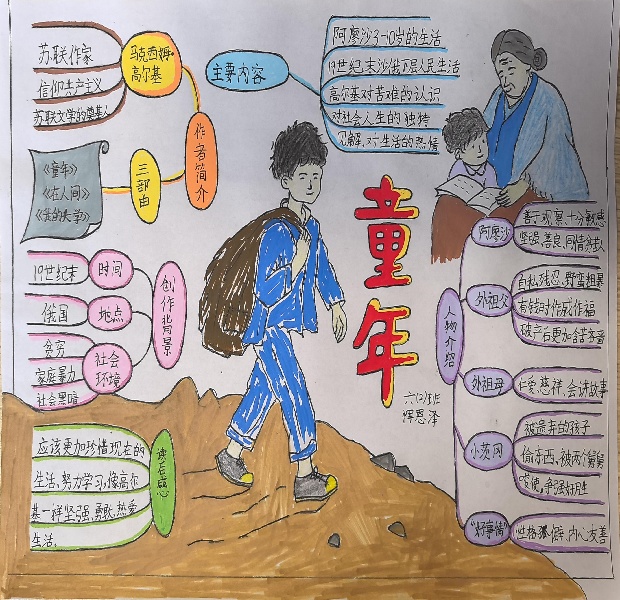 苏联作家
信仰共产主义
苏联文学的奠基人
马克西姆·
高尔基
作者简介
三部曲
《童年》
《在人间》
《我的大学》
主要内容
阿廖沙3-10岁的生活
19世纪末沙俄下层人民生活
高尔基对苦难的认识
对社会人生的独特
见解,对生活的热情
童年
六(2)班
恽恩泽
创作背景
时间
19世纪末
地点
俄国
社会
环境
贫穷
家庭暴力
社会黑暗
读后感
应该更加珍惜现在的
生活、努力学习,像高尔
基一样坚强、勇敢、热爱
生活。
人物介绍
阿廖沙
善于观察、十分敏感
坚强、善良、同情穷人
外祖父
自私残忍、野蛮粗暴
有钱时作威作福
破产后更加含苦吝啬
外祖母
仁爱、慈祥、会讲故事
小茨冈
被遗弃的孩子
偷东西、被两个舅舅
唆使,争强好胜
"好事情"
性格孤僻、内心友善